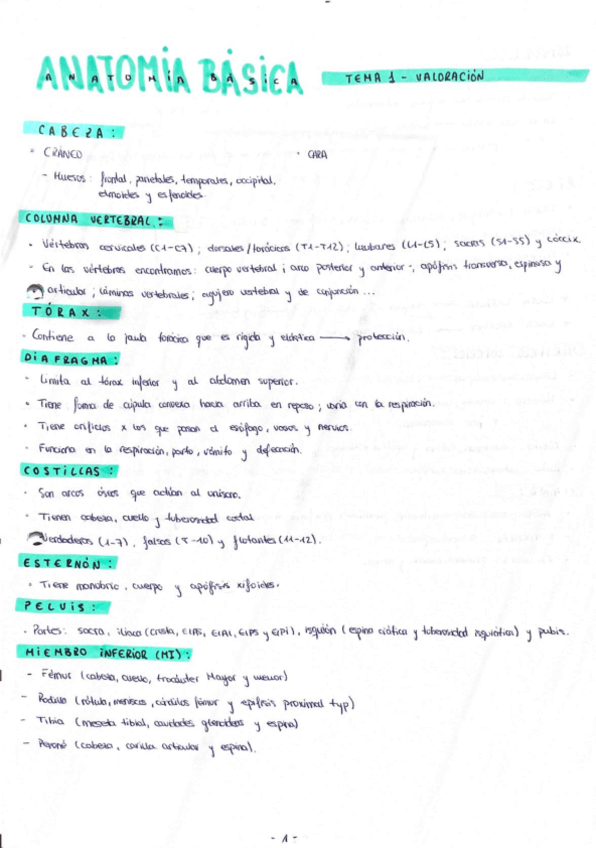 ANATOMÍA BÁSICA
ANATOMÍA BÁSICA
TEMA 1 - VALORACIÓN
CABEZA:
◦ CRÁNEO · CARA
- Huesos: frontal, parietales, temporales, occipital,
etmoides y esfenoides.
COLUMNA VERTEBRAL:
· Vértebras cervicales (C1-C7); dorsales/torácicas (T1-T12); lumbares (L1-L5); sacras (S1-S5) y cóccix.
· En las vértebras encontramos: cuerpo vertebral; arco posterior y anterior; apófisis transversa, espinosa y
articular; láminas vertebrales; agujero vertebral y de conjunción...
TÓRAX:
· Contiene a la jaula torácica que es rígida y elástica → protección.
DIAFRAGMA:
· Limita al tórax inferior y al abdomen superior.
· Tiene forma de cúpula convexa hacia arriba en reposo; varía con la respiración.
· Tiene orificios x los que pasan el esófago, vasos y nervios.
· Funciona en la respiración, parto, vómito y defecación.
COSTILLAS:
· Son arcos óseos que actúan al unísono.
· Tienen cabeza, cuello y tuberosidad costal
Verdaderas (1-7), falsas (7-10) y flotantes (11-12).
ESTERNÓN:
· Tiene manubrio, cuerpo y apófisis xifoides.
PELVIS:
· Partes: sacro, ilíaco (cresta, EIAS, EIAI, EIPS y EIPI), isquión (espina ciática y tuberosidad isquiática) y pubis.
MIEMBRO INFERIOR (MI):
- Fémur (cabeza, cuello, trocánter Mayor y menor)
- Rodilla (rótula, meniscos, cóndilos fémur y epífisis proximal typ)
- Tibia (meseta tibial, cavidades glenoideas y espina)
- Peroné (cabeza, carilla articular y espina).
- 1 -